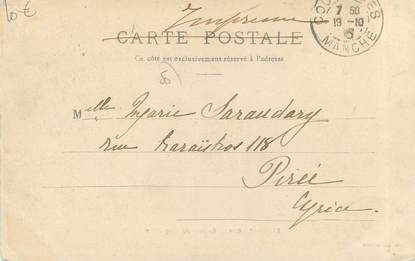 10€
Imprimé
CARTE POSTALE
Ce côté est exclusivement réservé à l'adresse
7 50
19-10
MANCHE
Melle Marie Saraudary
rue Karaïskos 118
Pirée